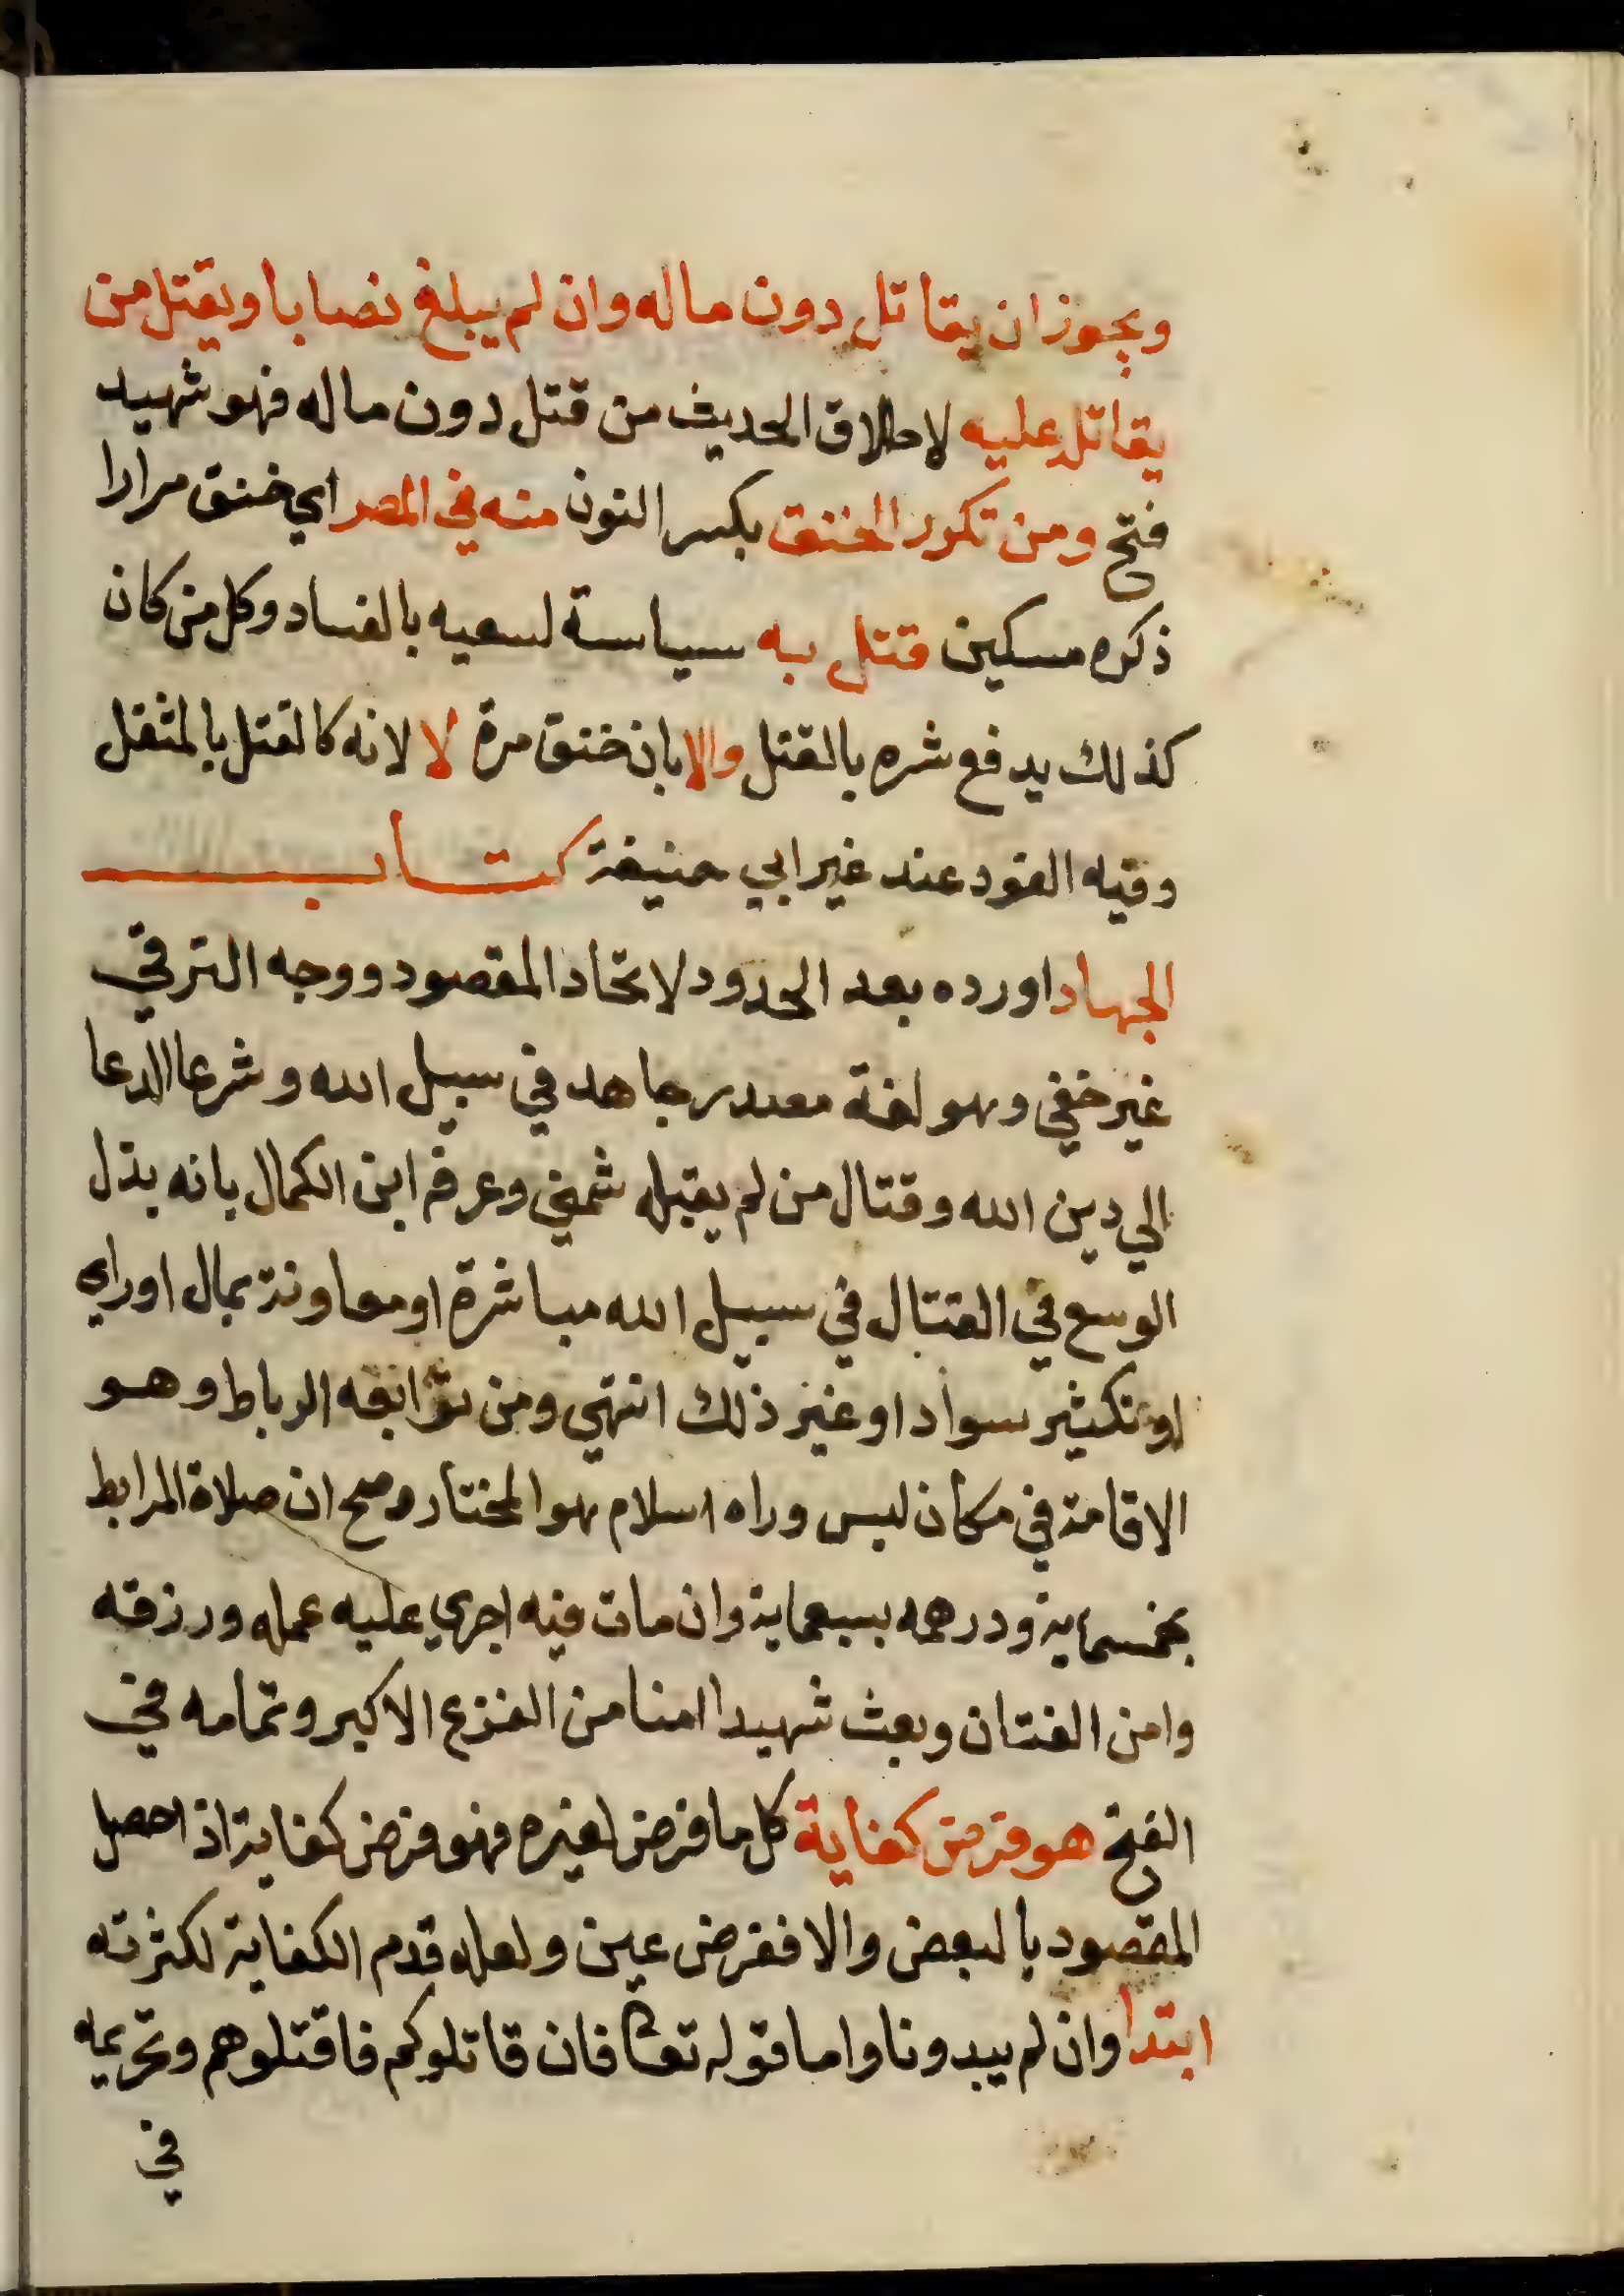 ويجوز ان يقاتل دون ماله وان لم يبلغ نصابا ويقتل من
يقاتل عليه لاطلاق الحديث من قتل دون ماله فهو شهيد
فتح ومن تكرر الخنق بكسر النون منه في المصر اي خنق مرارا
ذكره مسكين قتل به سياسة لسعيه بالفساد وكل من كان
كذلك يدفع شره بالقتل والا بان خنق مرة لا لانه كالقتل بالمثقل
وفيه القود عند غير ابي حنيفة كتاب
الجهاد اورده بعد الحدود لاتحاد المقصود ووجه الترقي
غير خفي وهو لغة مصدر جاهد في سبيل الله وشرعا الدعا
الي دين الله وقتال من لم يقبله شمني وعرفه ابن الكمال بانه بذل
الوسع في القتال في سبيل الله مباشرة او معاونة بمال او راي
او تكثير سواد او غير ذلك انتهي ومن توابعه الرباط وهو
الاقامة في مكان ليس وراه اسلام هو المختار وصح ان صلاة المرابط
بخمسماية ودرهمه بسبعماية وان مات فيه اجري عليه عمله ورزقه
وامن الفتان وبعث شهيدا امنا من الفزع الاكبر وتمامه في
الفتح هو فرض كفاية كل ما فرض لغيره فهو فرض كفاية اذا حصل
المقصود بالبعض والا ففرض عين ولعله قدم الكفاية لكثرته
ابتدا وان لم يبدونا واما قوله تعا فان قاتلوكم فاقتلوهم وتحريمه
في